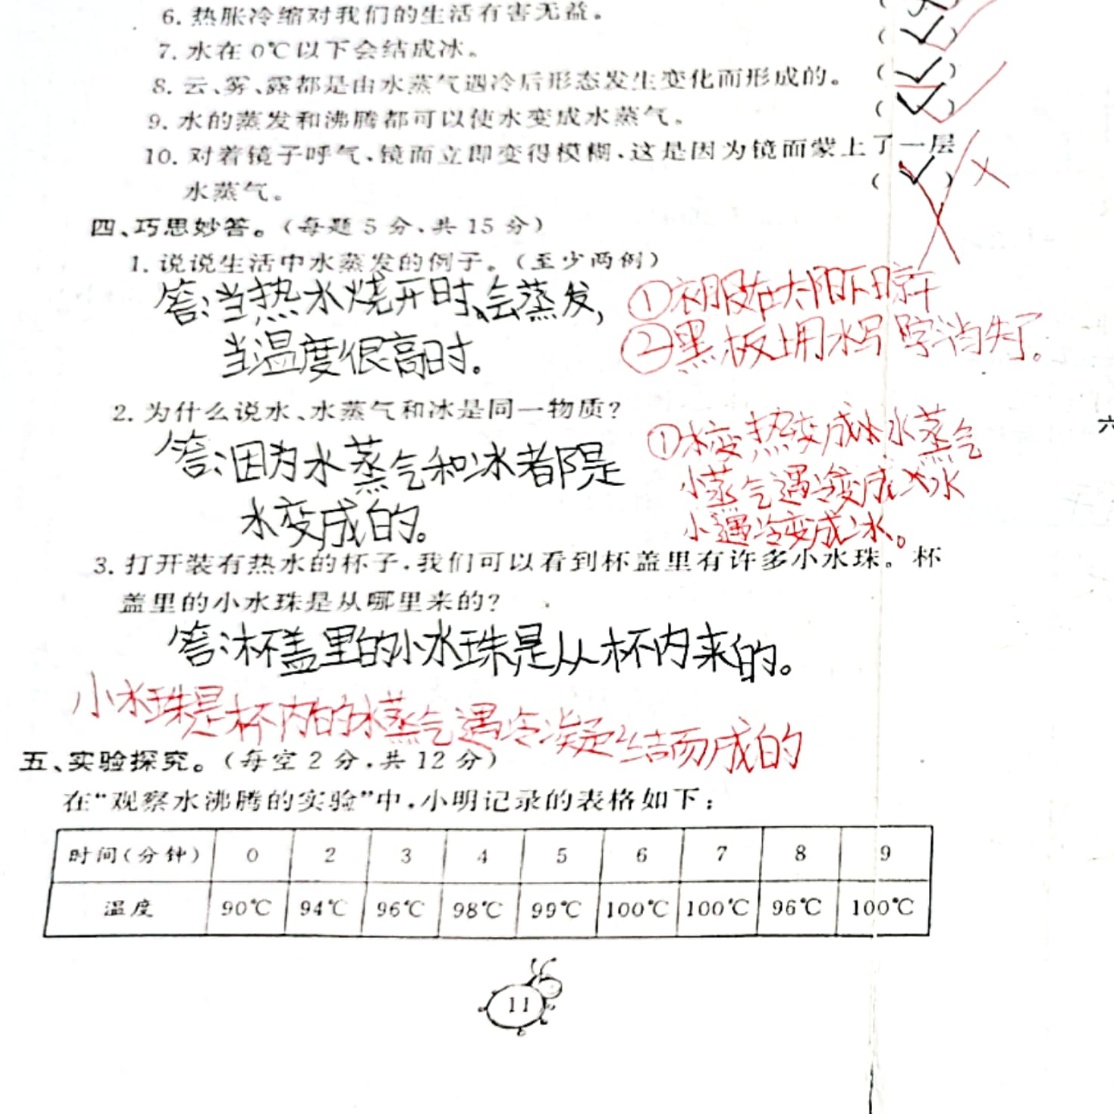 6. 热胀冷缩对我们的生活有害无益。
7. 水在0℃以下会结成冰。 (✓)
8. 云、雾、露都是由水蒸气遇冷后形态发生变化而形成的。 (✓)
9. 水的蒸发和沸腾都可以使水变成水蒸气。 (✓)
10. 对着镜子呼气,镜面立即变得模糊,这是因为镜面蒙上了一层
水蒸气。 (✓) ×
四、巧思妙答。(每题5分,共15分)
1. 说说生活中水蒸发的例子。(至少两例)
答:当热水烧开时,会蒸发,
当温度很高时。
①衣服在太阳下晾干
②黑板上用水写字消失了。
2. 为什么说水、水蒸气和冰是同一物质?
答:因为水蒸气和冰都是
水变成的。
①水变热变成水蒸气
水蒸气遇冷变成水
水遇冷变成冰。
3. 打开装有热水的杯子,我们可以看到杯盖里有许多小水珠。杯
盖里的小水珠是从哪里来的?
答:杯盖里的小水珠是从杯内来的。
小水珠是杯内的水蒸气遇冷凝结而成的
五、实验探究。(每空2分,共12分)
在“观察水沸腾的实验”中,小明记录的表格如下:
时间(分钟) 0 2 3 4 5 6 7 8 9
温度 90℃ 94℃ 96℃ 98℃ 99℃ 100℃ 100℃ 96℃ 100℃
11
六